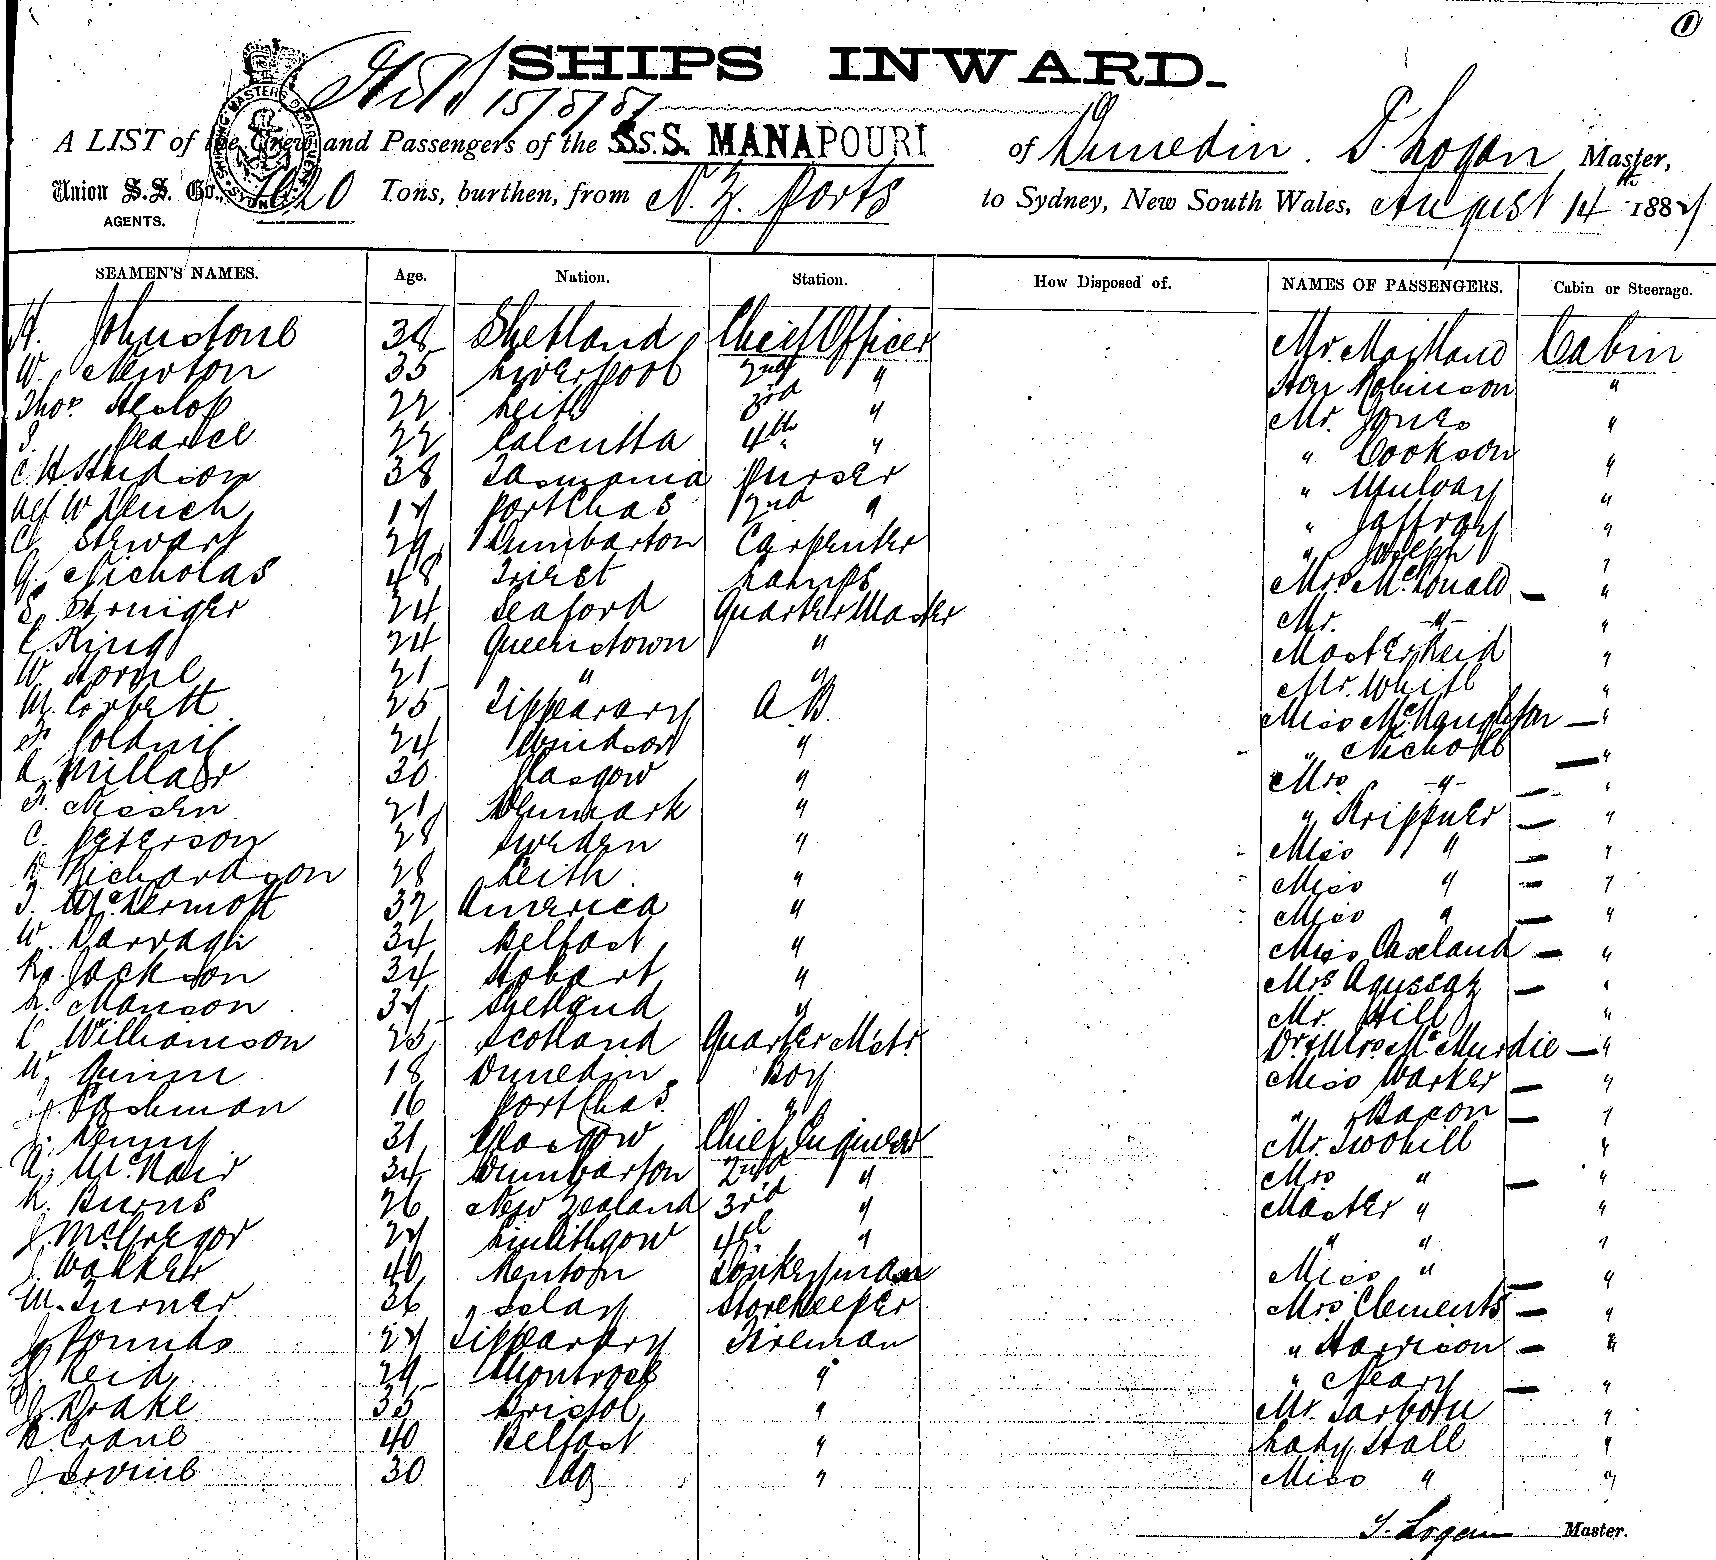 SHIPS INWARD.
A LIST of the Crew and Passengers of the S.S. MANAPOURI of Dunedin. T. Logan Master,
Union S.S. Co., 1020 Tons, burthen, from N. Z. Ports to Sydney, New South Wales, August 14th 1887
AGENTS.
SEAMEN'S NAMES. Age. Nation. Station. How Disposed of. NAMES OF PASSENGERS. Cabin or Steerage.
H. Johnstone 38 Shetland Chief Officer Mr. Maitland Cabin
W. Newton 35 Liverpool 2nd " Robinson "
Thos. Heslop 22 Leith 3rd " Mr. Jones "
Pearce 22 Calcutta 4th " " Cookson "
C. H. Hudson 38 Tasmania Purser " Mulvay "
W 17 Port Chas 2nd " " Jaffray "
C. Stewart 29 Dumbarton Carpenter " Joseph "
G. Nicholas 48 Triest Lamps Mrs McDonald "
24 Seaford Quarter Master Mr. " "
C King 24 Queenstown " Master Reid "
W. 21 " " Mr. White "
M. Corbett 25 Tipperary A.B. Miss McNaughton "
24 Windsor " " Nicholl "
Millar 30 Glasgow " Mrs " "
F. Nissen 21 Denmark " " Krippner "
C. Peterson 28 Sweden " Miss " "
D Richardson 28 Leith " Miss " "
McDermott 32 America " Miss " "
W. 34 Belfast " Miss "
Jackson 34 Hobart " Mrs "
Manson 37 Shetland " Mr. Hill "
C Williamson 25 Scotland Quarter Mstr. Dr & Mrs McMurdie "
18 Dunedin Boy Miss "
16 Port Chas. " " Bacon "
31 Glasgow Chief Engineer Mr. Twohill "
McNair 34 Dumbarton 2nd " Mrs " "
Burns 26 New Zealand 3rd " Master " "
J. McGregor 27 Linlithgow 4th " " " "
J. Walker 40 Donkeyman Miss " "
M. Turner 36 Islay Storekeeper Mrs Clements "
J Pounds 27 Tipperary Fireman " Harrison "
J. Reid 29 Montrose " " Neary "
J. Drake 35 Bristol " Mr. "
Crane 40 Belfast " Lady Hall "
J Irvine 30 do " Miss " "
T. Logan Master.